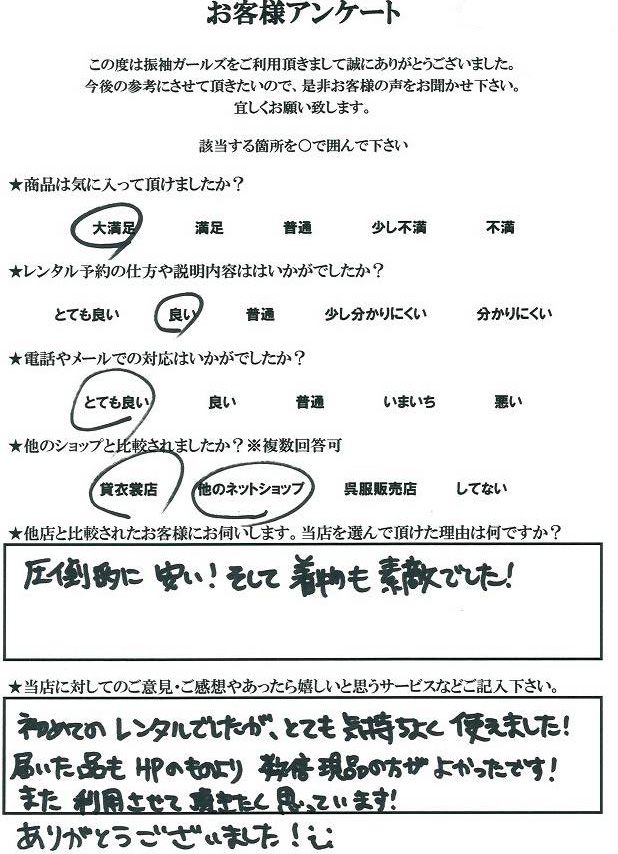 お客様アンケート
この度は振袖ガールズをご利用頂きまして誠にありがとうございました。
今後の参考にさせて頂きたいので、是非お客様の声をお聞かせ下さい。
宜しくお願い致します。
該当する箇所を○で囲んで下さい
★商品は気に入って頂けましたか?
大満足 満足 普通 少し不満 不満
★レンタル予約の仕方や説明内容ははいかがでしたか?
とても良い 良い 普通 少し分かりにくい 分かりにくい
★電話やメールでの対応はいかがでしたか?
とても良い 良い 普通 いまいち 悪い
★他のショップと比較されましたか?※複数回答可
貸衣裳店 他のネットショップ 呉服販売店 してない
★他店と比較されたお客様にお伺いします。当店を選んで頂けた理由は何ですか?
圧倒的に安い!そして着物も素敵でした!
★当店に対してのご意見・ご感想やあったら嬉しいと思うサービスなどご記入下さい。
初めてのレンタルでしたが、とても気持ちよく使えました!
届いた品もHPのものより数倍現品の方がよかったです!
また利用させて頂きたく思っています!
ありがとうございました!